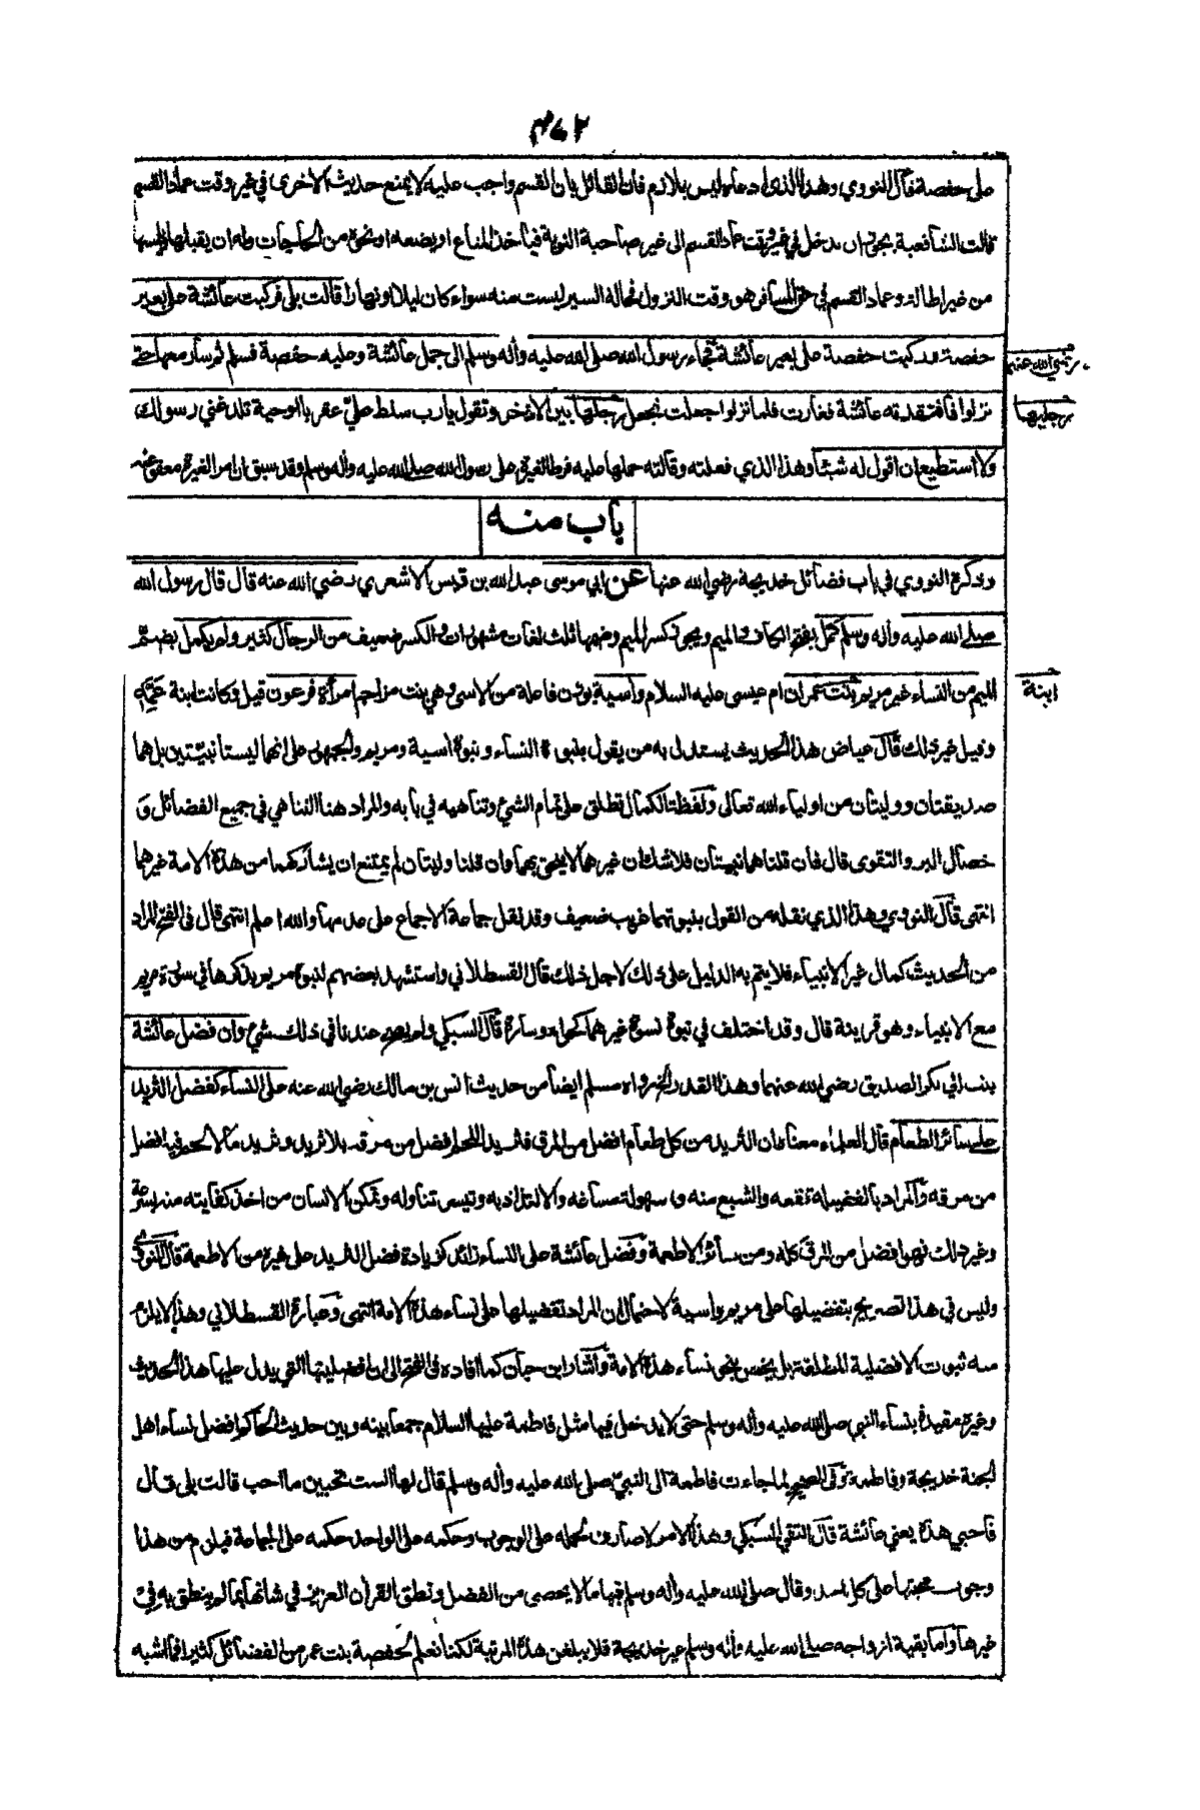 ٣٧٢
على حفصة قال النووي وهذا الذي ادعاه ليس بلازم فان القائل بان القسم واجب عليه لا يمنع حديث الاخرى في غير وقت عماد القسم
قالت الشافعية يجوز ان يدخل في غير وقت عماد القسم الى غير صاحبة النوبة فياخذ المتاع او يضعه او نحوه من الحاجات وله ان يقبلها ويلمسها
من غير اطالة وعماد القسم في حق المسافر هو وقت النزول فحالة السير ليست منه سواء كان ليلا او نهارا قالت بلى فركبت عائشة على بعير
حفصة وركبت حفصة على بعير عائشة فجاء رسول الله صلى الله عليه وأله وسلم الى جمل عائشة وعليه حفصة فسلم ثم سار معها حتى
رضي الله عنها
نزلوا فافتقدته عائشة فغارت فلما نزلوا جعلت تجعل رجلها بين الاذخر وتقول يارب سلط علي عقربا او حية تلدغني رسولك
رجليها
ولا استطيع ان اقول له شيئا وهذا الذي فعلته وقالته حملها عليه فرط الغيرة على رسول الله صلى الله عليه وأله وسلم وقد سبق ان امر الغيرة معفو عنه
باب منه
وذكره النووي في باب فضائل خديجة رضي الله عنها عن ابي موسى عبد الله بن قيس الاشعري رضي الله عنه قال قال رسول الله
صلى الله عليه وأله وسلم كمل بفتح الكاف والميم ويجوز كسر الميم وضمها ثلث لغات مشهورات والكسر ضعيف من الرجال كثير ولم يكمل بضم
الميم من النساء غير مريم بنت عمران ام عيسى عليه السلام واسية بوزن فاعلة من الاسى وهي بنت مزاحم امرأة فرعون قيل وكانت ابنة عمه
ابنة
وقيل غير ذلك قال عياض هذا الحديث يستدل به من يقول بنبوة النساء ونبوة اسية ومريم والجمهور على انهما ليستا نبيتين بل هما
صديقتان ووليتان من اولياء الله تعالى ولفظة الكمال تطلق على تمام الشيء وتناهيه في بابه والمراد هنا التناهي في جميع الفضائل و
خصال البر والتقوى قال فان قلنا هما نبيتان فلا شك ان غيرهما لا يلحق بهما وان قلنا وليتان لم يمتنع ان يشاركهما من هذه الامة غيرهما
انتهى قال النووي وهذا الذي نقله من القول بنبوتهما غريب ضعيف وقد نقل جماعة الاجماع على عدمها والله اعلم انتهى قال في الفتح المراد
من الحديث كمال غير الانبياء فلا يتم به الدليل على ذلك لاجل ذلك قال القسطلاني واستشهد بعضهم لنبوة مريم بذكرها في سورة مريم
مع الانبياء وهو قرينة قال وقد اختلف في نبوة نسوة غيرهما كحواء وسارة قال السبكي ولم يصح عندنا في ذلك شيء وان فضل عائشة
بنت ابي بكر الصديق رضي الله عنهما وهذا القدر اخرجه رواه مسلم ايضا من حديث انس بن مالك رضي الله عنه على النساء كفضل الثريد
على سائر الطعام قال العلماء معناه ان الثريد من كل طعام افضل من المرق فثريد اللحم افضل من مرقه بلا ثريد وثريد ما لا لحم فيه افضل
من مرقه والمراد بالفضيلة نفعه والشبع منه وسهولة مساغه والالتذاذ به وتيسر تناوله وتمكن الانسان من اخذ كفايته منه بسرعة
وغير ذلك فهو افضل من المرق كله ومن سائر الاطعمة وفضل عائشة على النساء زائد كزيادة فضل الثريد على غيره من الاطعمة قال النووي
وليس في هذا تصريح بتفضيلها على مريم واسية لاحتمال ان المراد تفضيلها على نساء هذه الامة انتهى وعبارة القسطلاني وهذا لا يلزم
منه ثبوت الافضلية المطلقة بل يخص بنحو نساء هذه الامة واشار ابن حبان كما افاده في الفتح الى ان افضليتها التي يدل عليها هذا الحديث
وغيره مقيدة بنساء النبي صلى الله عليه وأله وسلم حتى لا يدخل فيها مثل فاطمة عليها السلام جمعا بينه وبين حديث الحاكم افضل نساء اهل
الجنة خديجة وفاطمة وفي الصحيح لما جاءت فاطمة الى النبي صلى الله عليه وأله وسلم قال لها الست تحبين ما احب قالت بلى قال
فاحبي هذه يعني عائشة قال التقي السبكي وهذا الامر لا صارف لحمله على الوجوب وحكمه على الواحد حكمه على الجماعة فيلزم من هذا
وجوب محبتها على كل احد وقال صلى الله عليه وأله وسلم فيها ما لا يحصى من الفضل ونطق القرأن العزيز في شانها بما لم ينطق به في
غيرها واما بقية ازواجه صلى الله عليه وأله وسلم غير خديجة فلا يبلغن هذه المرتبة لكنا نعلم لحفصة بنت عمر من الفضائل كثيرا فما اشبه